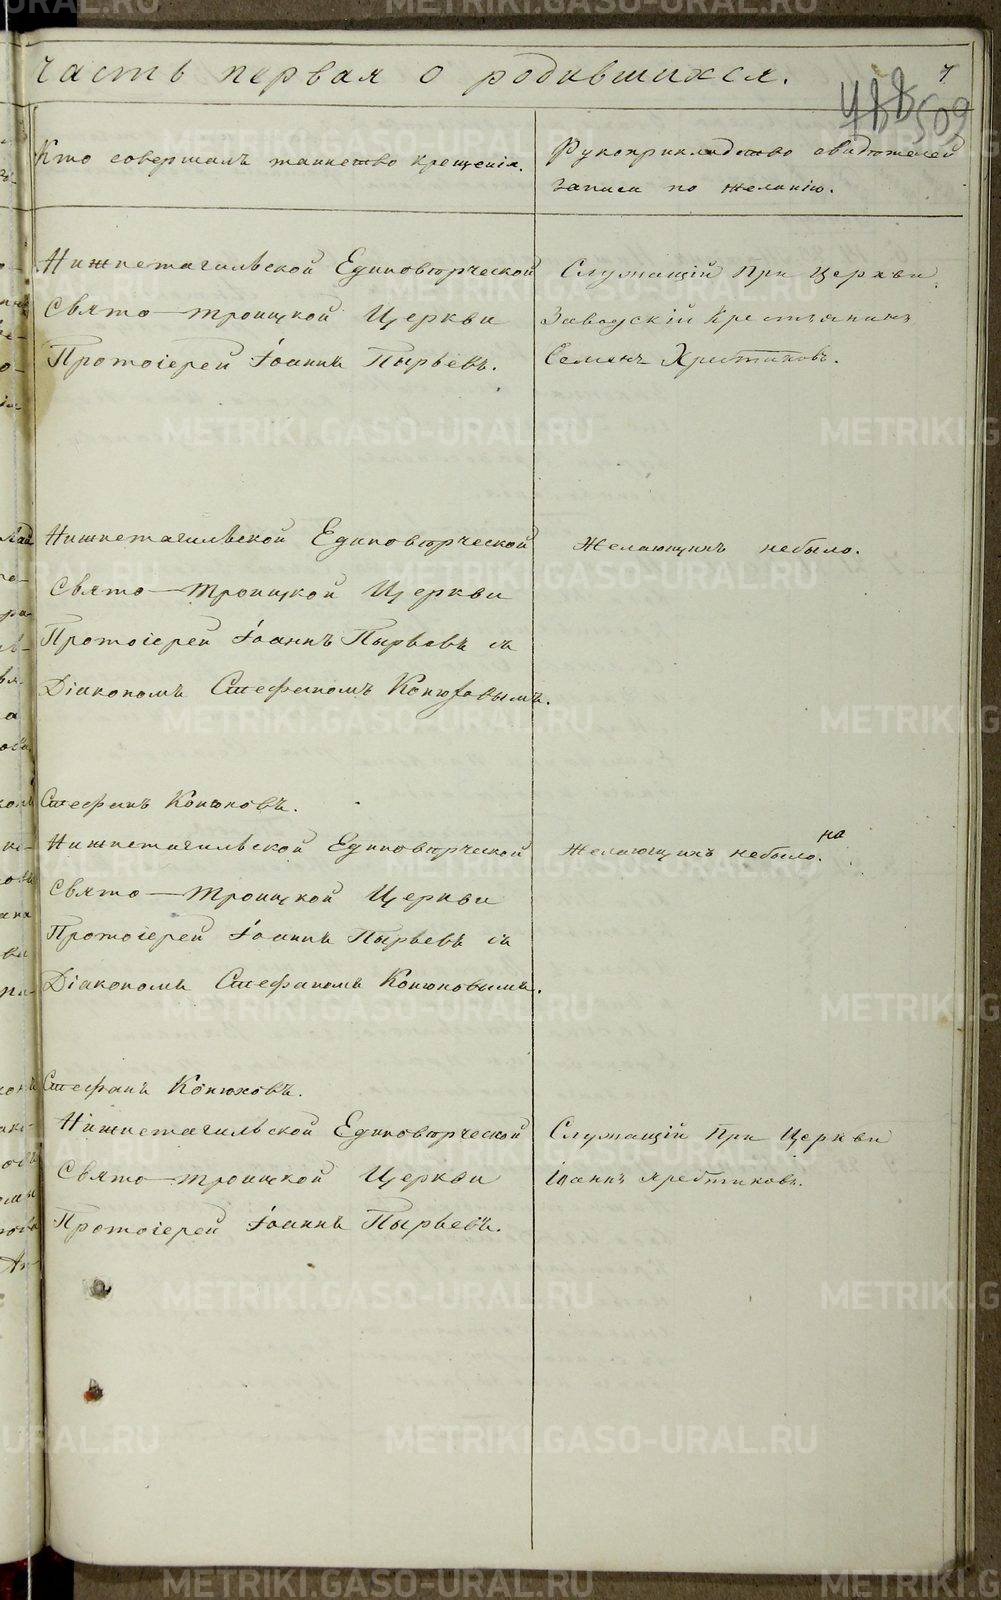 Часть первая о родившихся.
7
509
Кто совершалъ таинство крещенія.
Рукоприкладство свидѣтелей
записи по желанію.
Нижнетагильской Единовѣрческой
Свято-Троицкой Церкви
Протоіерей Іоаннъ Пырьевъ.
Служащій При Церкви
Заводскій Крестьянинъ
Семенъ
Нижнетагильской Единовѣрческой
Свято-Троицкой Церкви
Протоіерей Іоаннъ Пырьевъ съ
Діакономъ Стефаномъ Конюховымъ.
Желающихъ небыло.
Стефанъ Конюховъ.
Нижнетагильской Единовѣрческой
Свято-Троицкой Церкви
Протоіерей Іоаннъ Пырьевъ съ
Діакономъ Стефаномъ Конюховымъ.
на
Желающихъ небыло.
Стефанъ Конюховъ.
Нижнетагильской Единовѣрческой
Свято-Троицкой Церкви
Протоіерей Іоаннъ Пырьевъ.
Служащій При Церкви
Іоаннъ
METRIKI.GASO-URAL.RU